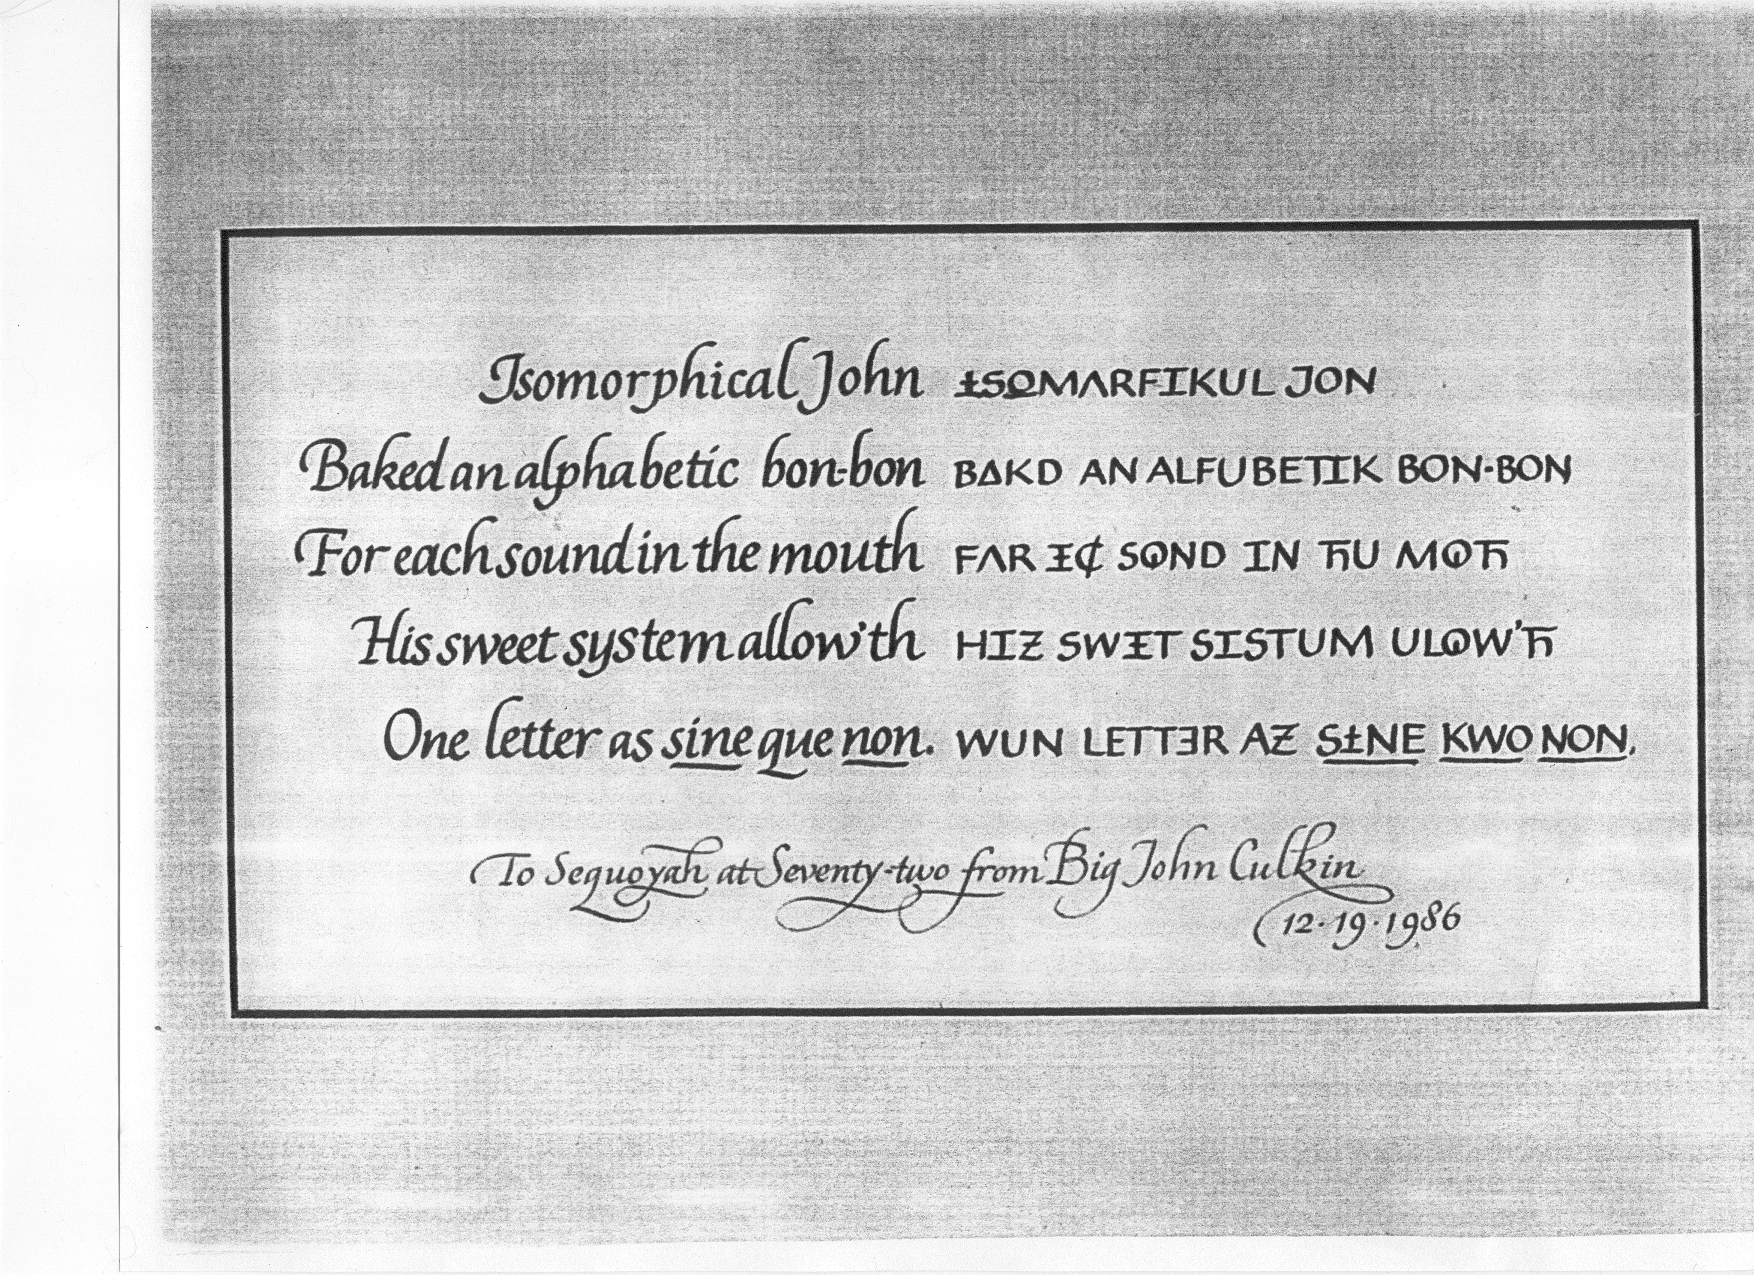 Isomorphical John ±SO̲MɅRFIKUL JON
Baked an alphabetic bon-bon B∆KD AN ALFUBETIK BON-BON
For each sound in the mouth FɅR ΞȻ SʘND IN ЋU MʘЋ
His sweet system allow'th HIƵ SWΞT SISTUM ULʘW'Ћ
One letter as sine que non. WUN LETTƎR AƵ S±NE KWO NON.
To Sequoyah at Seventy-two from Big John Culkin
12·19·1986